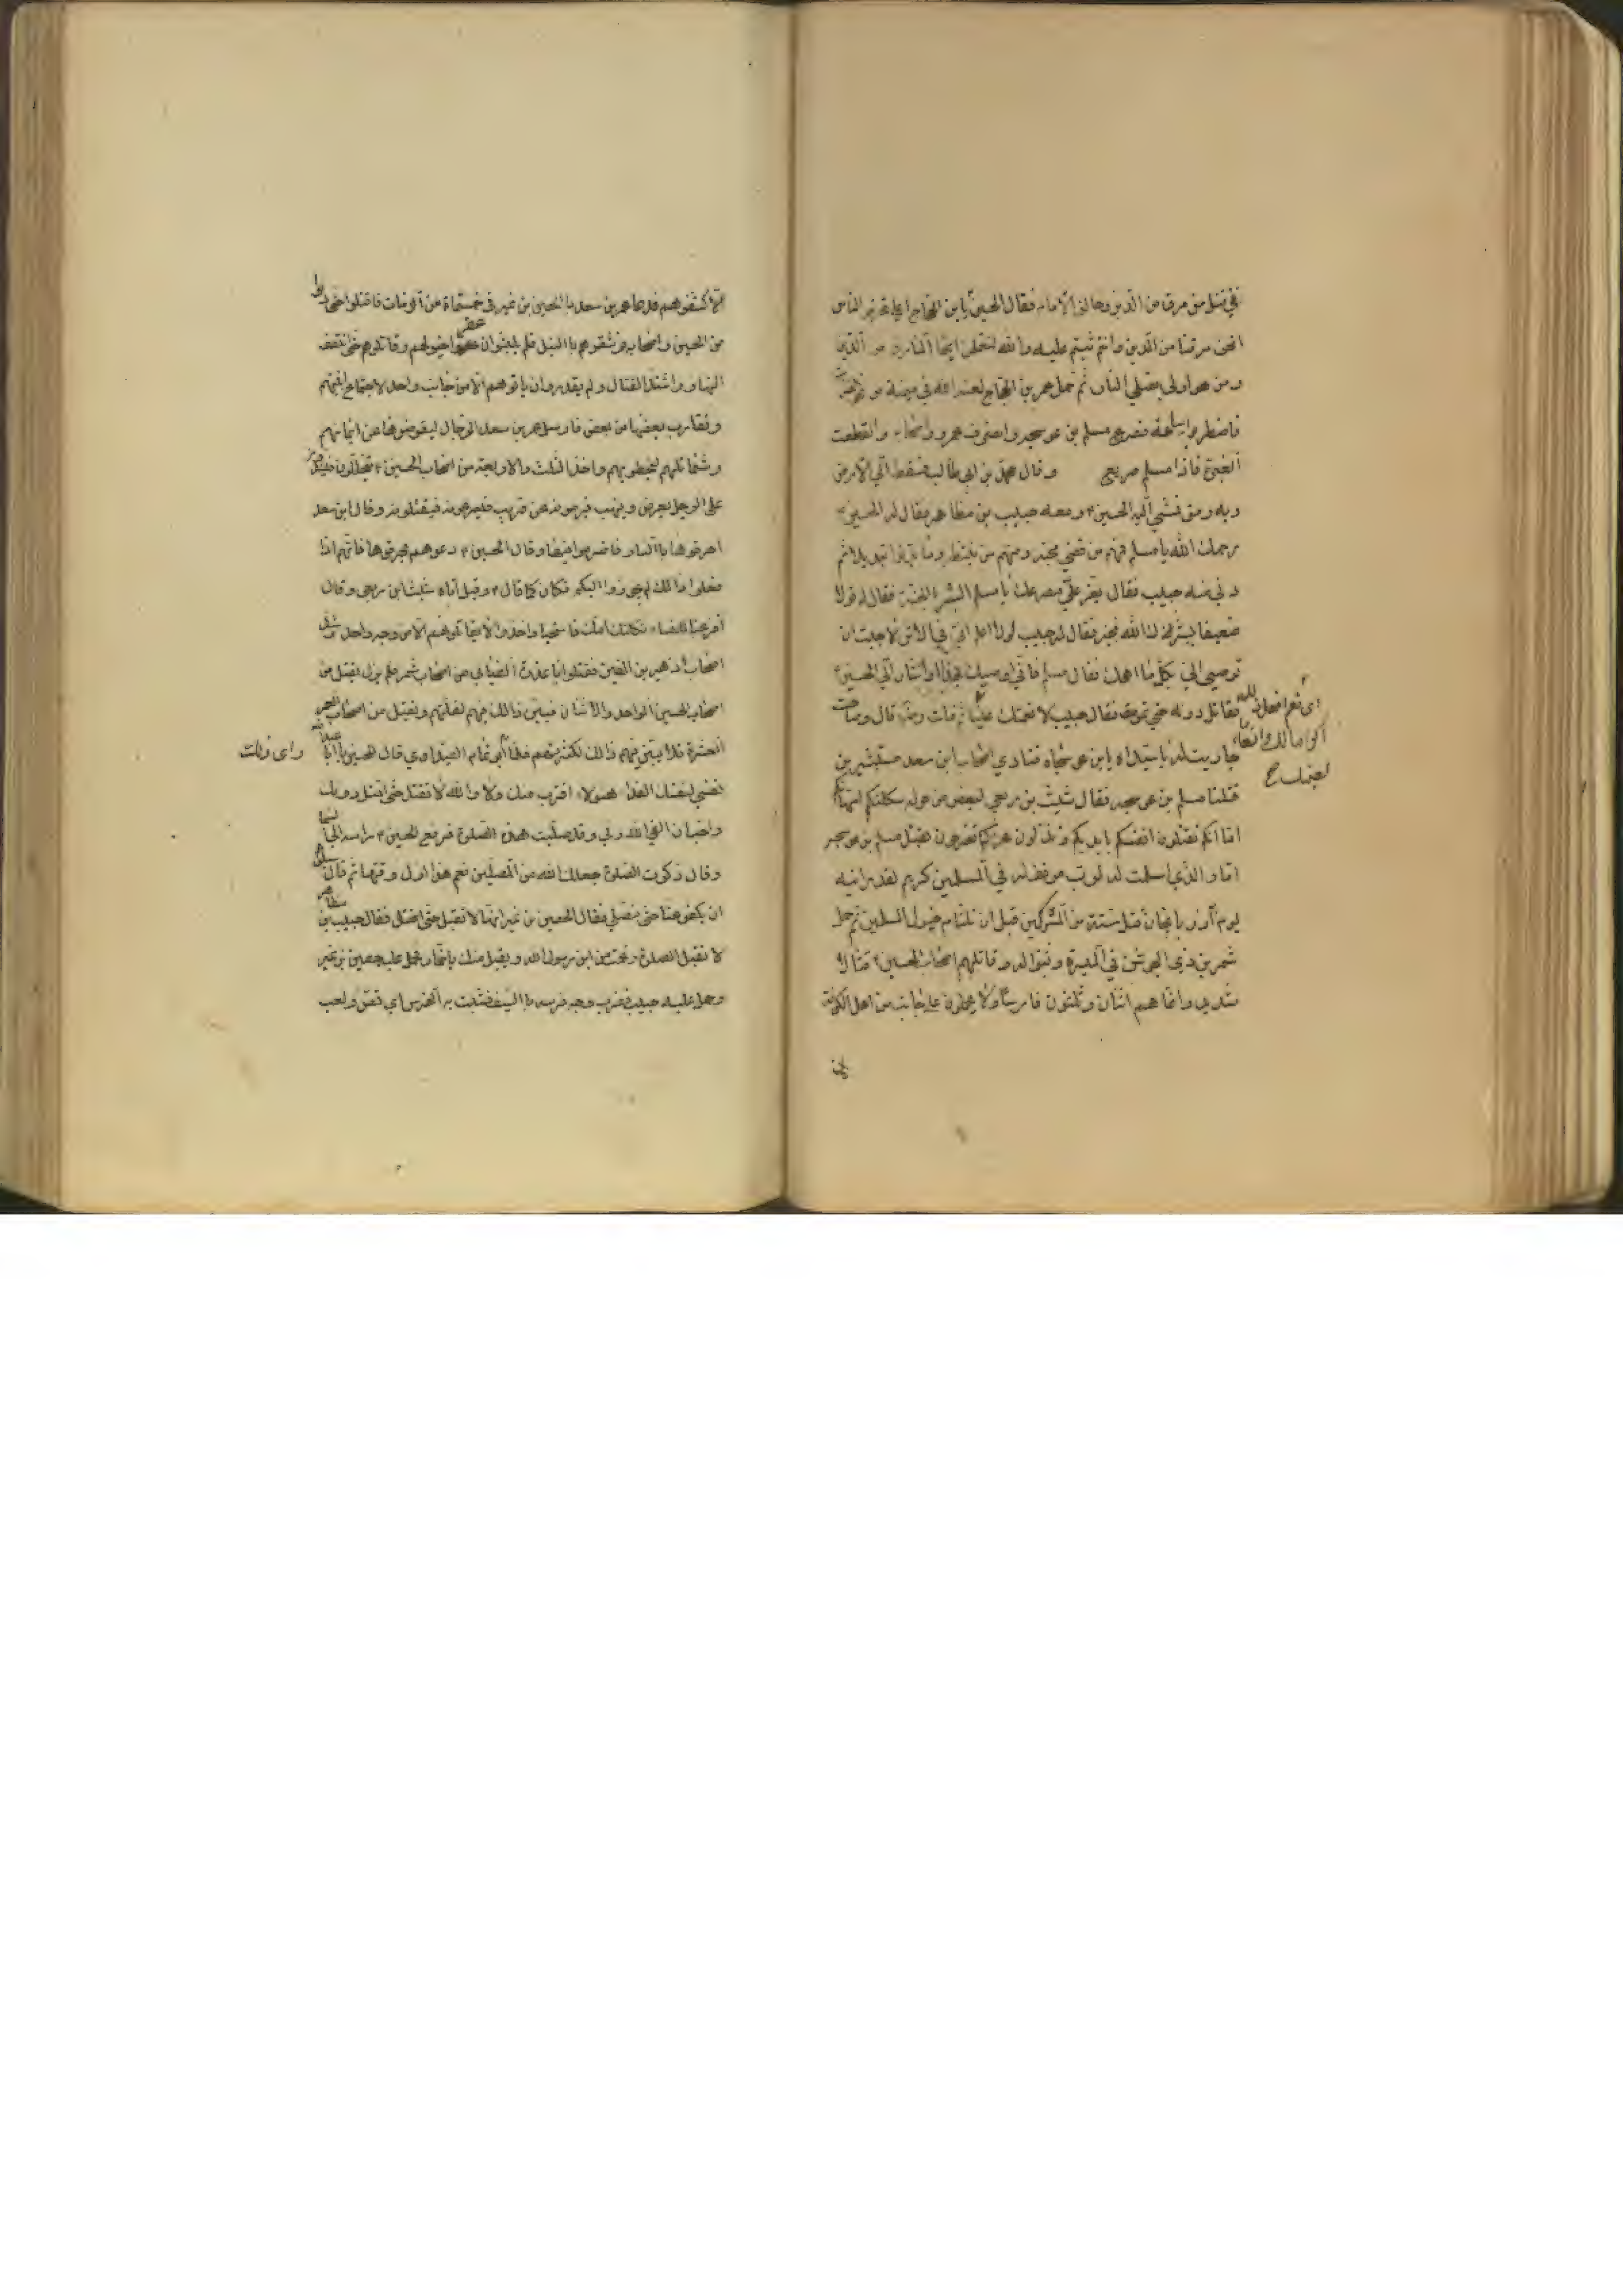 في قتل من مرق من الدين وخالف الامام فقال الحسين يا بن الحجاج اعلي تحرض الناس
انحن مرقنا من الدين وانتم ثبتم عليه والله لتعلمن اينا المارق من الدين
ومن هو اولى بصلي النار ثم حمل عمر بن الحجاج لعنه الله في ميمنة من نحو الفرات
فاضطربوا ساعة فصرع مسلم بن عوسجه وانصرف عمرو واصحابه وانقطعت
الغبرة فاذا مسلم صريع وقال محمد بن ابي طالب فسقط الى الارض
وبه رمق فمشى اليه الحسين ومعه حبيب بن مظاهر فقال له الحسين
رحمك الله يا مسلم فمنهم من قضى نحبه ومنهم من ينتظر وما بدلوا تبديلا ثم
دنى منه حبيب فقال يعز علي مصرعك يا مسلم ابشر بالجنة فقال له قولا
ضعيفا بشرك الله بخير فقال له حبيب لولا اعلم اني في الاثر لاحببت ان
توصي الي بكل ما اهمك فقال مسلم فاني اوصيك بهذا واشار الى الحسين
فقاتل دونه حتى تموت فقال حبيب لانعمنك عينا ثم مات رضه قال وصاحت
اى نعم افعل ذلك
اكراما لك وانعاما
لعينك ح
جارية له يا سيداه يا بن عوسجاه فنادى اصحاب ابن سعد مستبشرين
قتلنا مسلم بن عوسجه فقال شبث بن ربعي لبعض من حوله ثكلتكم امهاتكم
اما انكم تقتلون انفسكم بايديكم وتذلون عزكم اتفرحون بقتل مسلم بن عوسجه
اما والذي اسلمت له لرب موقف له في المسلمين كريم لقد رايته
يوم آذربايجان قتل ستة من المشركين قبل ان تلتام خيول المسلمين ثم حمل
شمر بن ذي الجوشن في الميسرة فثبتوا له وقاتلهم اصحاب الحسين قتالا
شديدا وانما هم اثنان وثلثون فارسا فلا يحملون على جانب من اهل الكوفة
الا كشفوهم فدعا عمر بن سعد بالحصين بن نمير في خمسمائة من الرمات فاقتلوا حتى دنوا
من الحسين واصحابه فرشقوهم بالنبل فلم يلبثوا ان عقروا خيولهم وقاتلوهم حتى انتصف
النهار واشتد القتال ولم يقدروا ان ياتوهم الا من جانب واحد لاجتماع ابنيتهم
وتقارب بعضها من بعض فارسل عمر بن سعد الرجال ليقوضوها عن ايمانهم
وشمائلهم ليحيطوا بهم واخذ الثلث والاربعة من اصحاب الحسين يتخللون فيشدون
على الرجل يعرض وينهب فيرمونه عن قريب فيصرعونه فيقتلونه وقال ابن سعد
احرقوها بالنار فاضرموا فيها وقال الحسين دعوهم يحرقوها فانهم اذا
فعلوا ذالك لم يجوزوا اليكم فكان كما قال وقيل اتاه شبث ابن ربعي وقال
افزعنا النساء ثكلتك امك فاستحيا واخذوا لا يقاتلونهم الا من وجه واحد وشد
اصحاب زهير بن القين فقتلوا ابا عذرة الضبابي من اصحاب شمر فلم يزل يقتل من
اصحاب الحسين الواحد والاثنان فيبين ذالك فيهم لقلتهم ويقتل من اصحاب عمر
العشرة فلا يبين فيهم ذالك لكثرتهم فلما راى ابو ثمام الصيداوي قال للحسين يا ابا عبد الله
راى ذلك
نفسي لنفسك الفدا هولاء اقتربوا منك ولا والله لا تقتل حتى اقتل دونك
واحب ان القى الله ربي وقد صليت هذه الصلوة فرفع الحسين راسه الى السما
وقال ذكرت الصلوة جعلك الله من المصلين نعم هذا اول وقتها ثم قال سلوهم
ان يكفوا عنا حتى نصلي فقال الحصين بن نمير انها لا تقبل فقال حبيب بن مظاهر
لا تقبل الصلوة زعمت من ابن رسول الله وتقبل منك يا حمار فحمل عليه حصين بن نمير
وحمل عليه حبيب فضرب وجه فرسه بالسيف فشبت به الفرس اي قمص ولعب